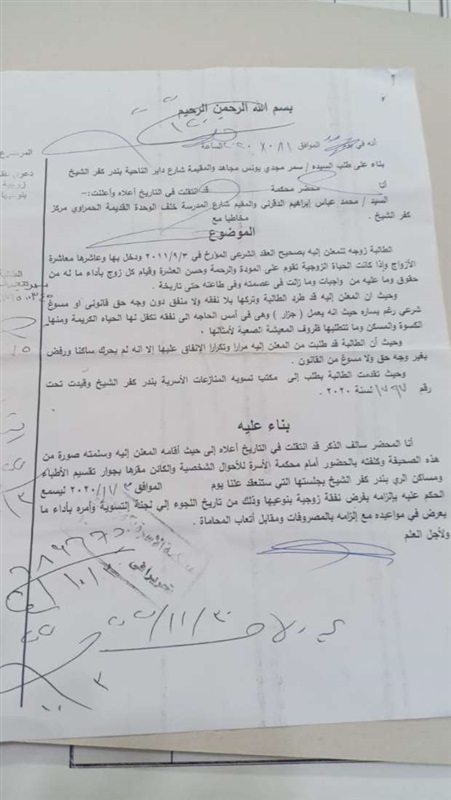 بسم الله الرحمن الرحيم
أنه في يوم الموافق / / ٢٠٢٠ الساعة
بناء على طلب السيده / سمر مجدي يونس مجاهد والمقيمة شارع داير الناحية بندر كفر الشيخ
أنا محضر محكمة قد انتقلت في التاريخ أعلاه وأعلنت:-
السيد / محمد عباس إبراهيم الدقرني والمقيم شارع المدرسة خلف الوحدة القديمة الحمراوي مركز
كفر الشيخ . مخاطبا مع
الموضوع
الطالبة زوجه للمعلن إليه بصحيح العقد الشرعي المؤرخ في ٢٠١١/٩/٣ ودخل بها وعاشرها معاشرة
الأزواج وإذا كانت الحياة الزوجية تقوم على المودة والرحمة وحسن العشرة وقيام كل زوج بأداء ما له من
حقوق وما عليه من واجبات وما زالت في عصمته وفى طاعته حتى تاريخة .
وحيث ان المعلن إليه قد طرد الطالبة وتركها بلا نفقه ولا منفق دون وجه حق قانونى أو مسوغ
شرعي رغم يساره حيث انه يعمل ( جزار ) وهى فى أمس الحاجه الى نفقه تكفل لها الحياه الكريمة ومنها
الكسوة والمسكن وما تتطلبها ظروف المعيشة الصعبة لأمثالها .
وحيث أن الطالبة قد طلبت من المعلن إليه مرارا وتكرارا الإنفاق عليها إلا انه لم يحرك ساكنا ورفض
بغير وجه حق ولا مسوغ من القانون .
وحيث تقدمت الطالبة بطلب إلى مكتب تسويه المنازعات الأسرية بندر كفر الشيخ وقيدت تحت
رقم لسنة ٢٠٢٠ .
بناء عليه
أنا المحضر سالف الذكر قد انتقلت في التاريخ أعلاه إلى حيث أقامه المعلن إليه وسلمته صورة من
هذه الصحيفة وكلفته بالحضور أمام محكمة الأسرة للأحوال الشخصية والكائن مقرها بجوار تقسيم الأطباء
ومساكن الري بندر كفر الشيخ بجلستها التي ستنعقد علنا يوم الموافق / / ٢٠٢٠ ليسمع
الحكم عليه بإلزامه بفرض نفقة زوجية بنوعيها وذلك من تاريخ اللجوء إلي لجنة التسوية وأمره بأداء ما
يعرض في مواعيده مع إلزامه بالمصروفات ومقابل أتعاب المحاماة .
ولأجل العلم